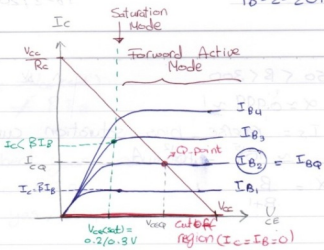 Ic
Saturation
Mode
Vcc
Rc
Forward Active
Mode
IB4
IB3
Ic<BIB
Q-point
ICQ
IB2 = IBQ
Ic=BIB
IB1
VCE(sat)=
0.2/0.3V
VCEQ
Vcc
VCE
Cutoff
region (Ic=IB=0)